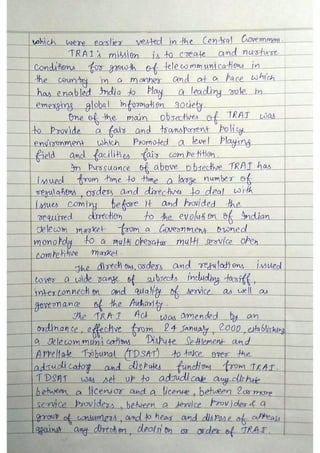 which were earlier vested in the Central Government.
TRAI's mission is to create and nurture
conditions for growth of telecommunications in
the country in a manner and at a pace which
has enabled India to Play a leading role in
emerging global Information society.
One of the main objectives of TRAI was
to Provide a fair and transparent Policy
environment which Promoted a level Playing
field and facilities fair competition.
In Pursuance of above objective TRAI has
issued from time to time a large number of
regulations, orders and directives to deal with
issues coming before it and Provided the
required direction to the evolution of Indian
telecom market from a Government owned
monopoly to a multi operator multi service open
competitive market.
The directions, orders and regulations issued
cover a wide range of subjects including tariff,
interconnection and quality of service as well as
governance of the Authority.
The TRAI Act was amended by an
ordinance, effective from 24 January, 2000, establishing
a Telecommunications Dispute Settlement and
Appellate Tribunal (TDSAT) to take over the
adjudicatory and disputes functions from TRAI.
TDSAT was set up to adjudicate any dispute
between a licensor and a licensee, between 2 or more
service Providers, between a service Provider & a
group of consumers, and to hear and dispose of appeals
against any direction, decision or order of TRAI.